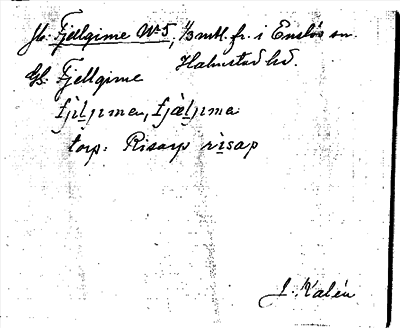 Jb: Fjellgime No 5, 1/3 mtl. fr. i Enslövs sn.
Halmstad hd.
Gs: Fjellgime
fjiljımen, fjæljıma
torp: Risarp rısap
J. Kalén